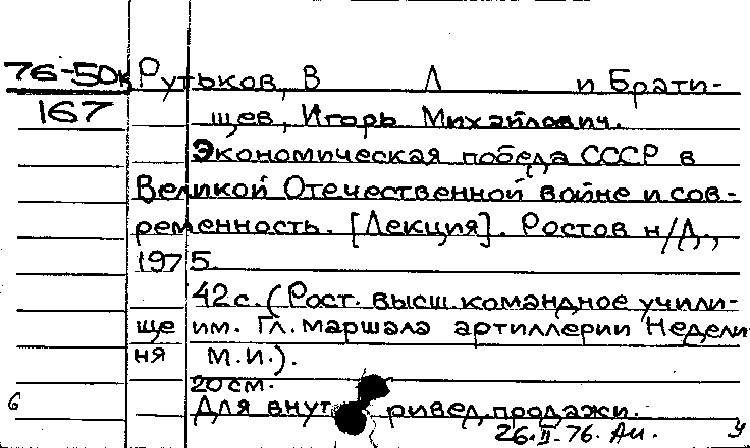 76-50к Рутьков, В Л и Брати-
167 щев, Игорь Михайлович.
Экономическая победа СССР в
Великой Отечественной войне и сов-
ременность. [Лекция]. Ростов н/Д.,
1975.
42 с. (Рост. высш. командное учили-
ще им. Гл. маршала артиллерии Недели
ня М.И.).
20 см.
6 Для внут ривед. продажи.
26.II-76. У